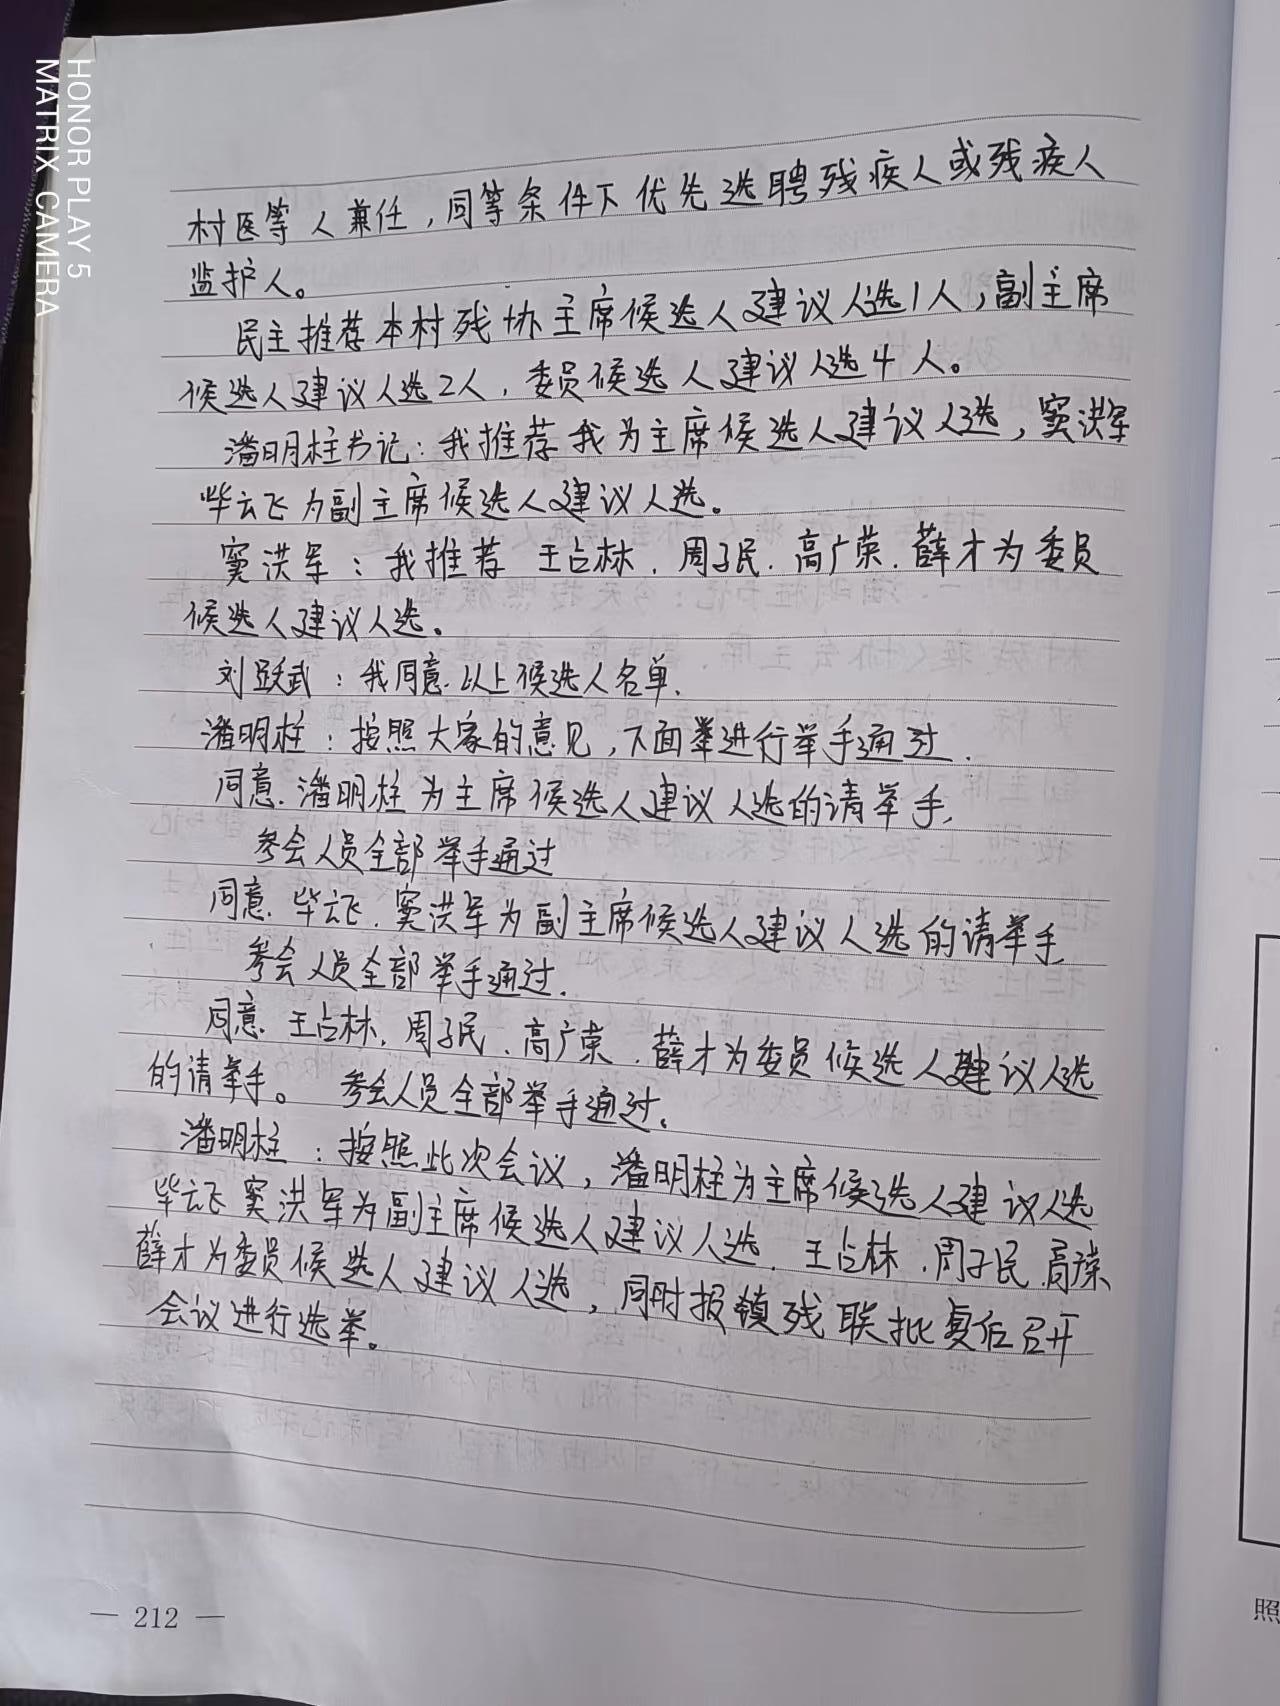 HONOR PLAY 5
MATRIX CAMERA
村医等人兼任，同等条件下优先选聘残疾人或残疾人
监护人。
民主推荐本村残协主席候选人建议人选1人，副主席
候选人建议人选2人，委员候选人建议人选4人。
潘明柱书记：我推荐我为主席候选人建议人选，窦洪军
毕云飞为副主席候选人建议人选。
窦洪军：我推荐 王占林.周子民.高广荣.薛才为委员
候选人建议人选。
刘跃武：我同意以上候选人名单.
潘明柱：按照大家的意见，下面举进行举手通过.
同意.潘明柱为主席候选人建议人选的请举手.
参会人员全部举手通过
同意.毕云飞.窦洪军为副主席候选人建议人选的请举手.
参会人员全部举手通过.
同意.王占林.周子民.高广荣.薛才为委员候选人建议人选
的请举手。 参会人员全部举手通过.
潘明柱：按照此次会议，潘明柱为主席候选人建议人选
毕云飞 窦洪军为副主席候选人建议人选. 王占林.周子民.高广荣
薛才为委员候选人建议人选，同时报镇残联批复后召开
会议进行选举。
— 212 —
照